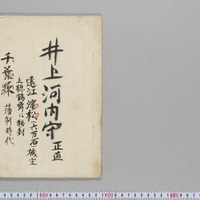 井上河内守 正直
遠江濱松(六万石城主
上総鶴舞に移封
千葉縣 藩制時代